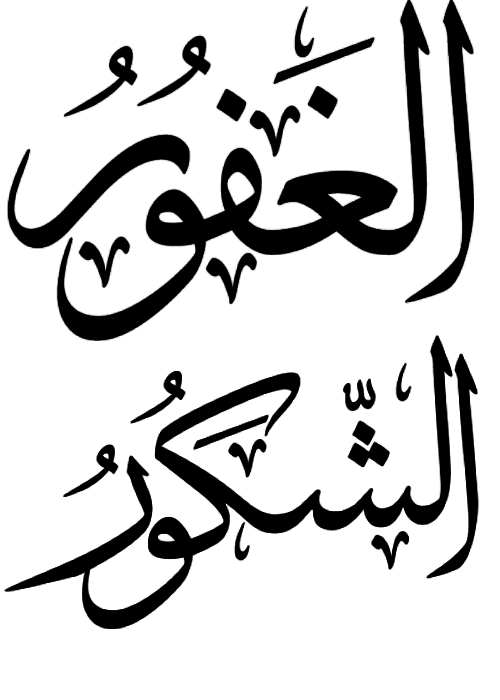 الغَفُورُ
الشَّكُورُ